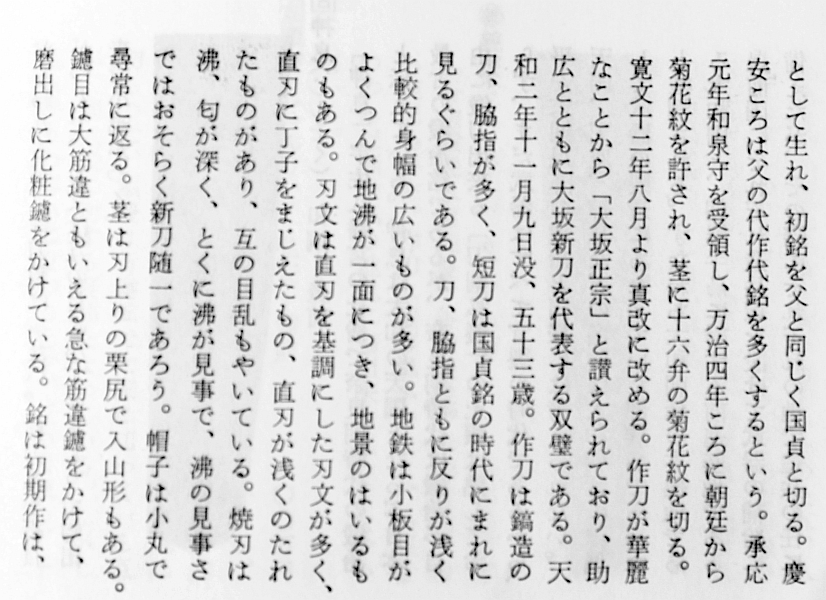 として生れ、初銘を父と同じく国貞と切る。慶
安ころは父の代作代銘を多くするという。承応
元年和泉守を受領し、万治四年ころに朝廷から
菊花紋を許され、茎に十六弁の菊花紋を切る。
寛文十二年八月より真改に改める。作刀が華麗
なことから「大坂正宗」と讃えられており、助
広とともに大坂新刀を代表する双璧である。天
和二年十一月九日没、五十三歳。作刀は鎬造の
刀、脇指が多く、短刀は国貞銘の時代にまれに
見るぐらいである。刀、脇指ともに反りが浅く
比較的身幅の広いものが多い。地鉄は小板目が
よくつんで地沸が一面につき、地景のはいるも
のもある。刃文は直刃を基調にした刃文が多く、
直刃に丁子をまじえたもの、直刃が浅くのたれ
たものがあり、互の目乱もやいている。焼刃は
沸、匂が深く、とくに沸が見事で、沸の見事さ
ではおそらく新刀随一であろう。帽子は小丸で
尋常に返る。茎は刃上りの栗尻で入山形もある。
鑢目は大筋違ともいえる急な筋違鑢をかけて、
磨出しに化粧鑢をかけている。銘は初期作は、